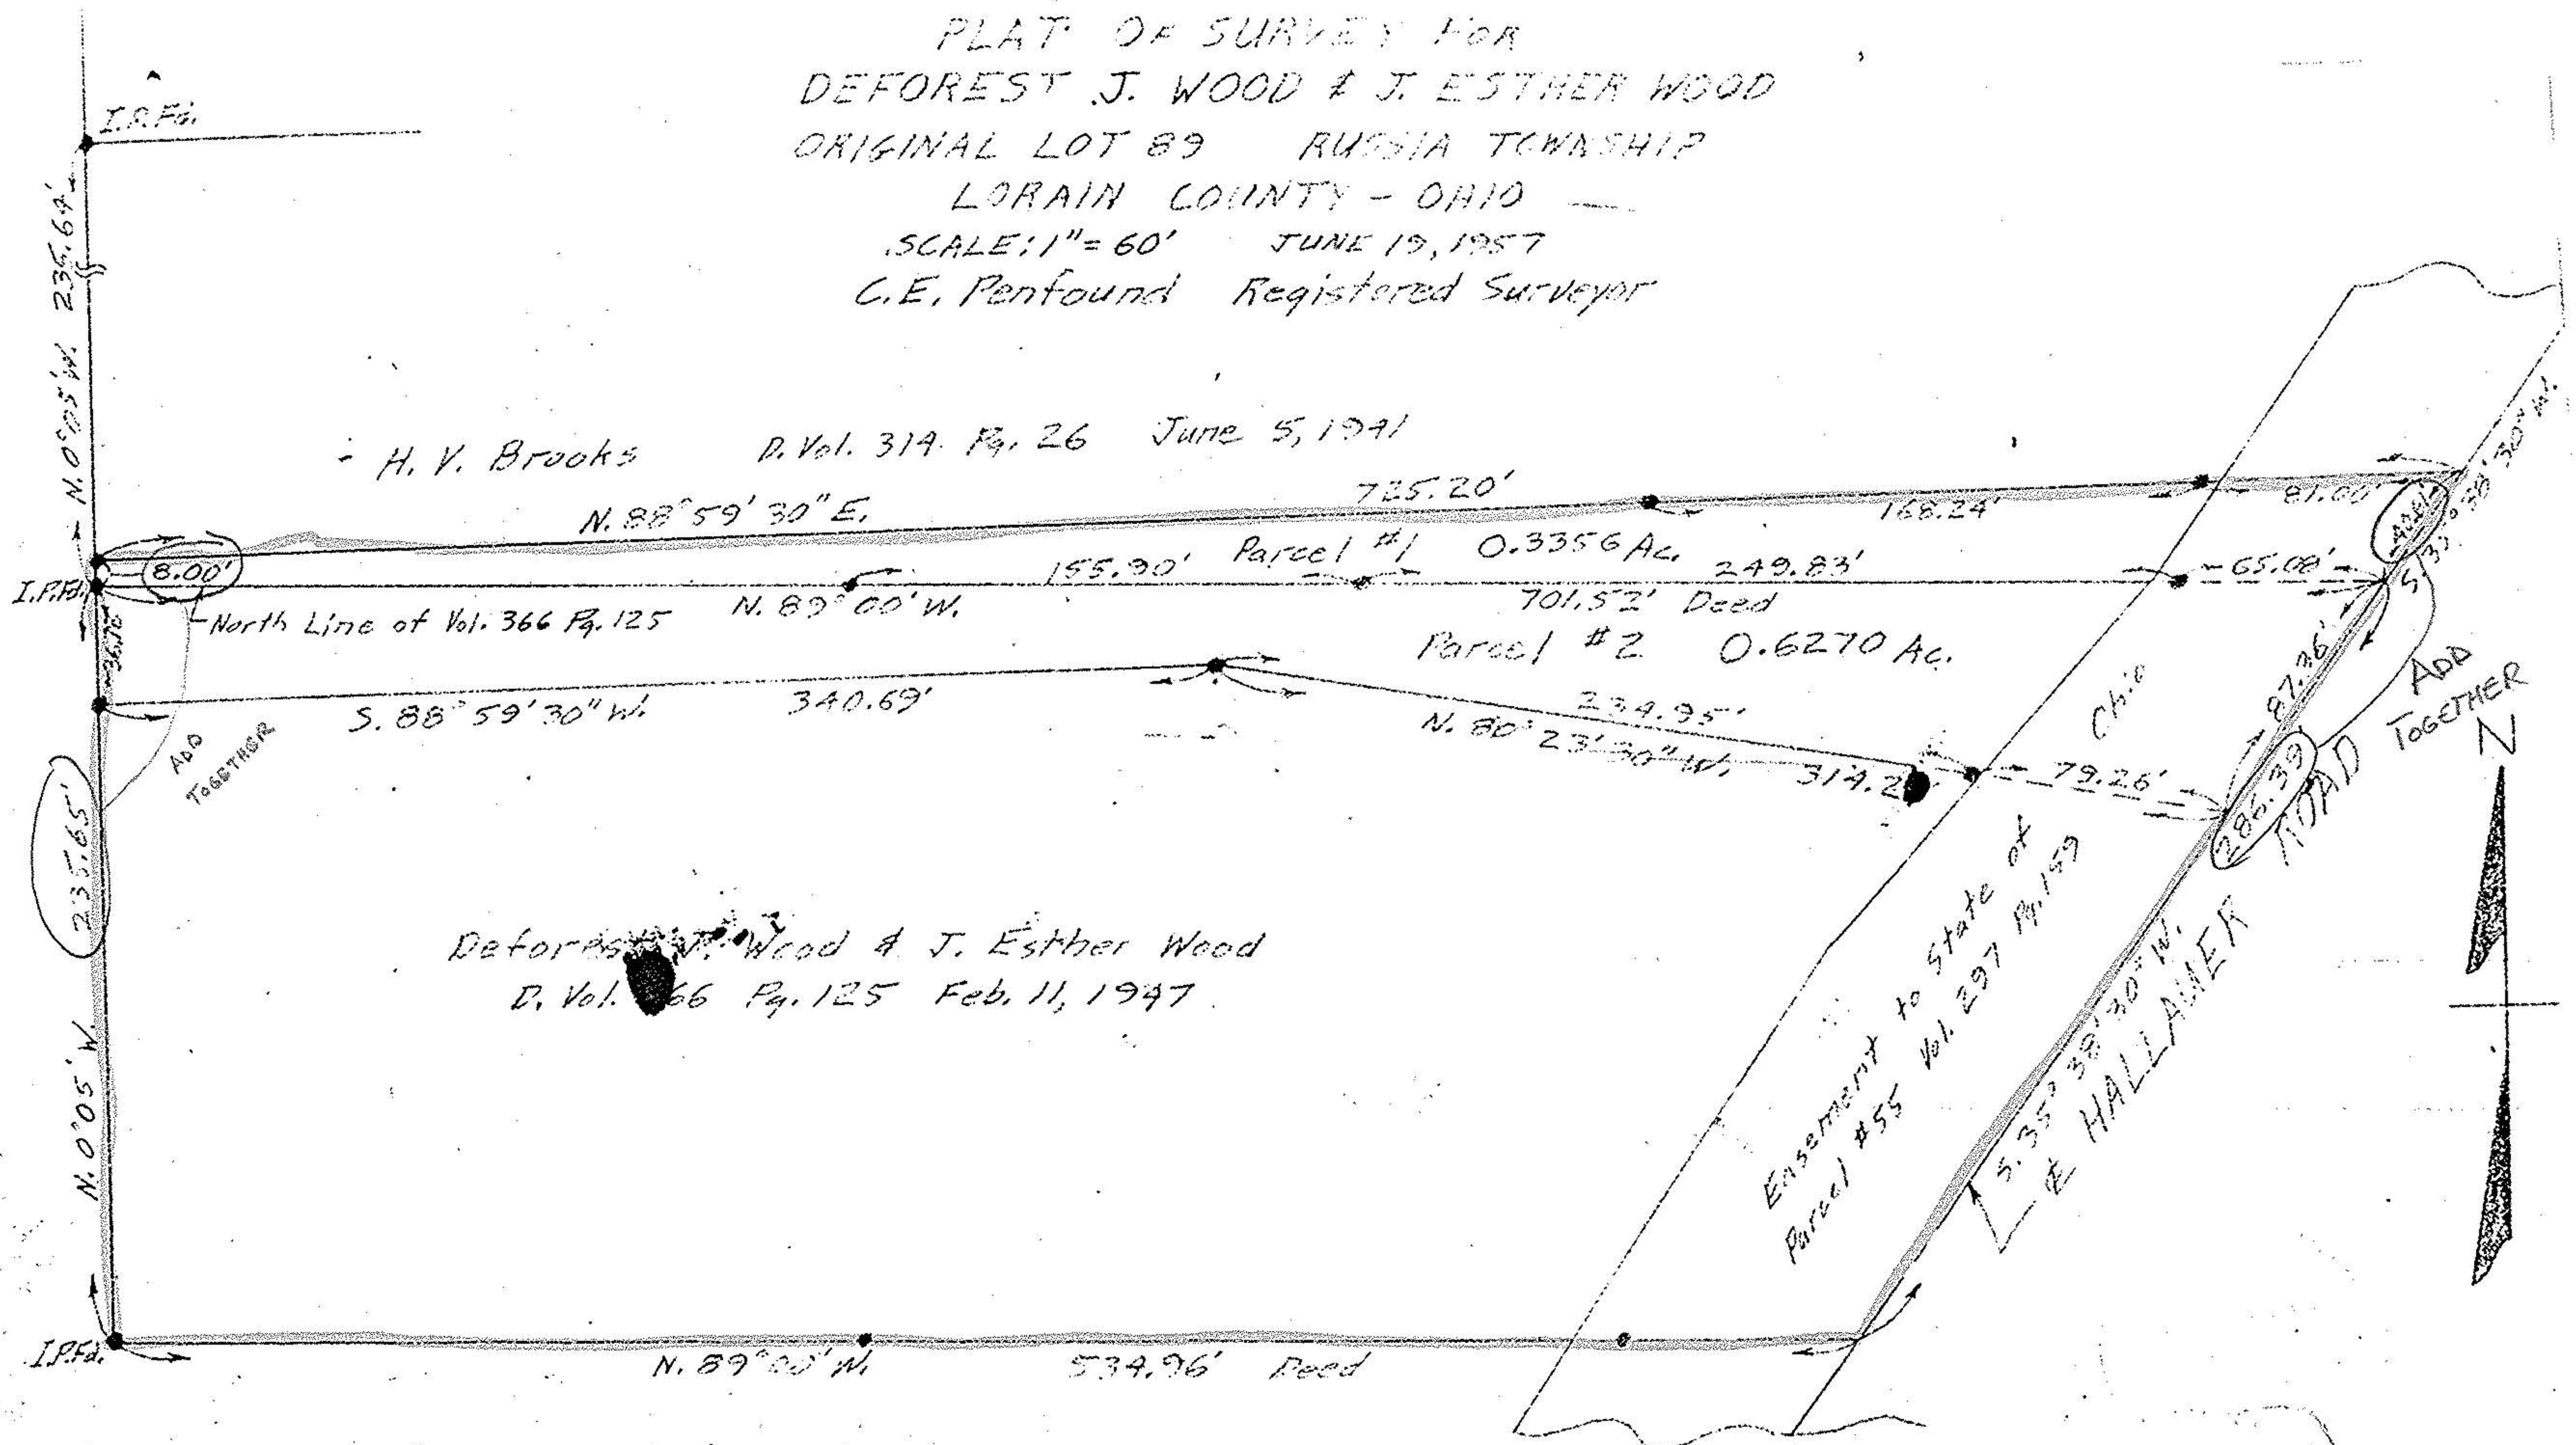 PLAT OF SURVEY FOR
DEFOREST J. WOOD & J. ESTHER WOOD
ORIGINAL LOT 89 RUSSIA TOWNSHIP
LORAIN COUNTY - OHIO
SCALE: 1" = 60' JUNE 19, 1957
C.E. Penfound Registered Surveyor
I.P.Fd.
N. 0°05' W. 235.64'
H. V. Brooks D. Vol. 314 Pg. 26 June 5, 1941
N. 88°59'30" E. 725.20'
168.24'
81.00'
Parcel #1 0.3356 Ac.
I.P.Fd.
8.00'
155.90'
249.83'
65.08'
North Line of Vol. 366 Pg. 125
N. 89°00' W. 701.52' Deed
Parcel #2 0.6270 Ac.
36.12
S. 88°59'30" W. 340.69'
234.95'
N. 80°23'30" W. 314.2
79.26'
87.36'
286.39
ADD
TOGETHER
ADD
TOGETHER
N
235.65'
N. 0°05' W.
Deforest J. Wood & J. Esther Wood
D. Vol. 66 Pg. 125 Feb. 11, 1947
Easement to State of Ohio
Parcel #55 Vol. 297 Pg. 159
S. 35°38'30" W.
℄ HALLAUER ROAD
I.P.Fd.
N. 89°00' W. 534.96' Deed